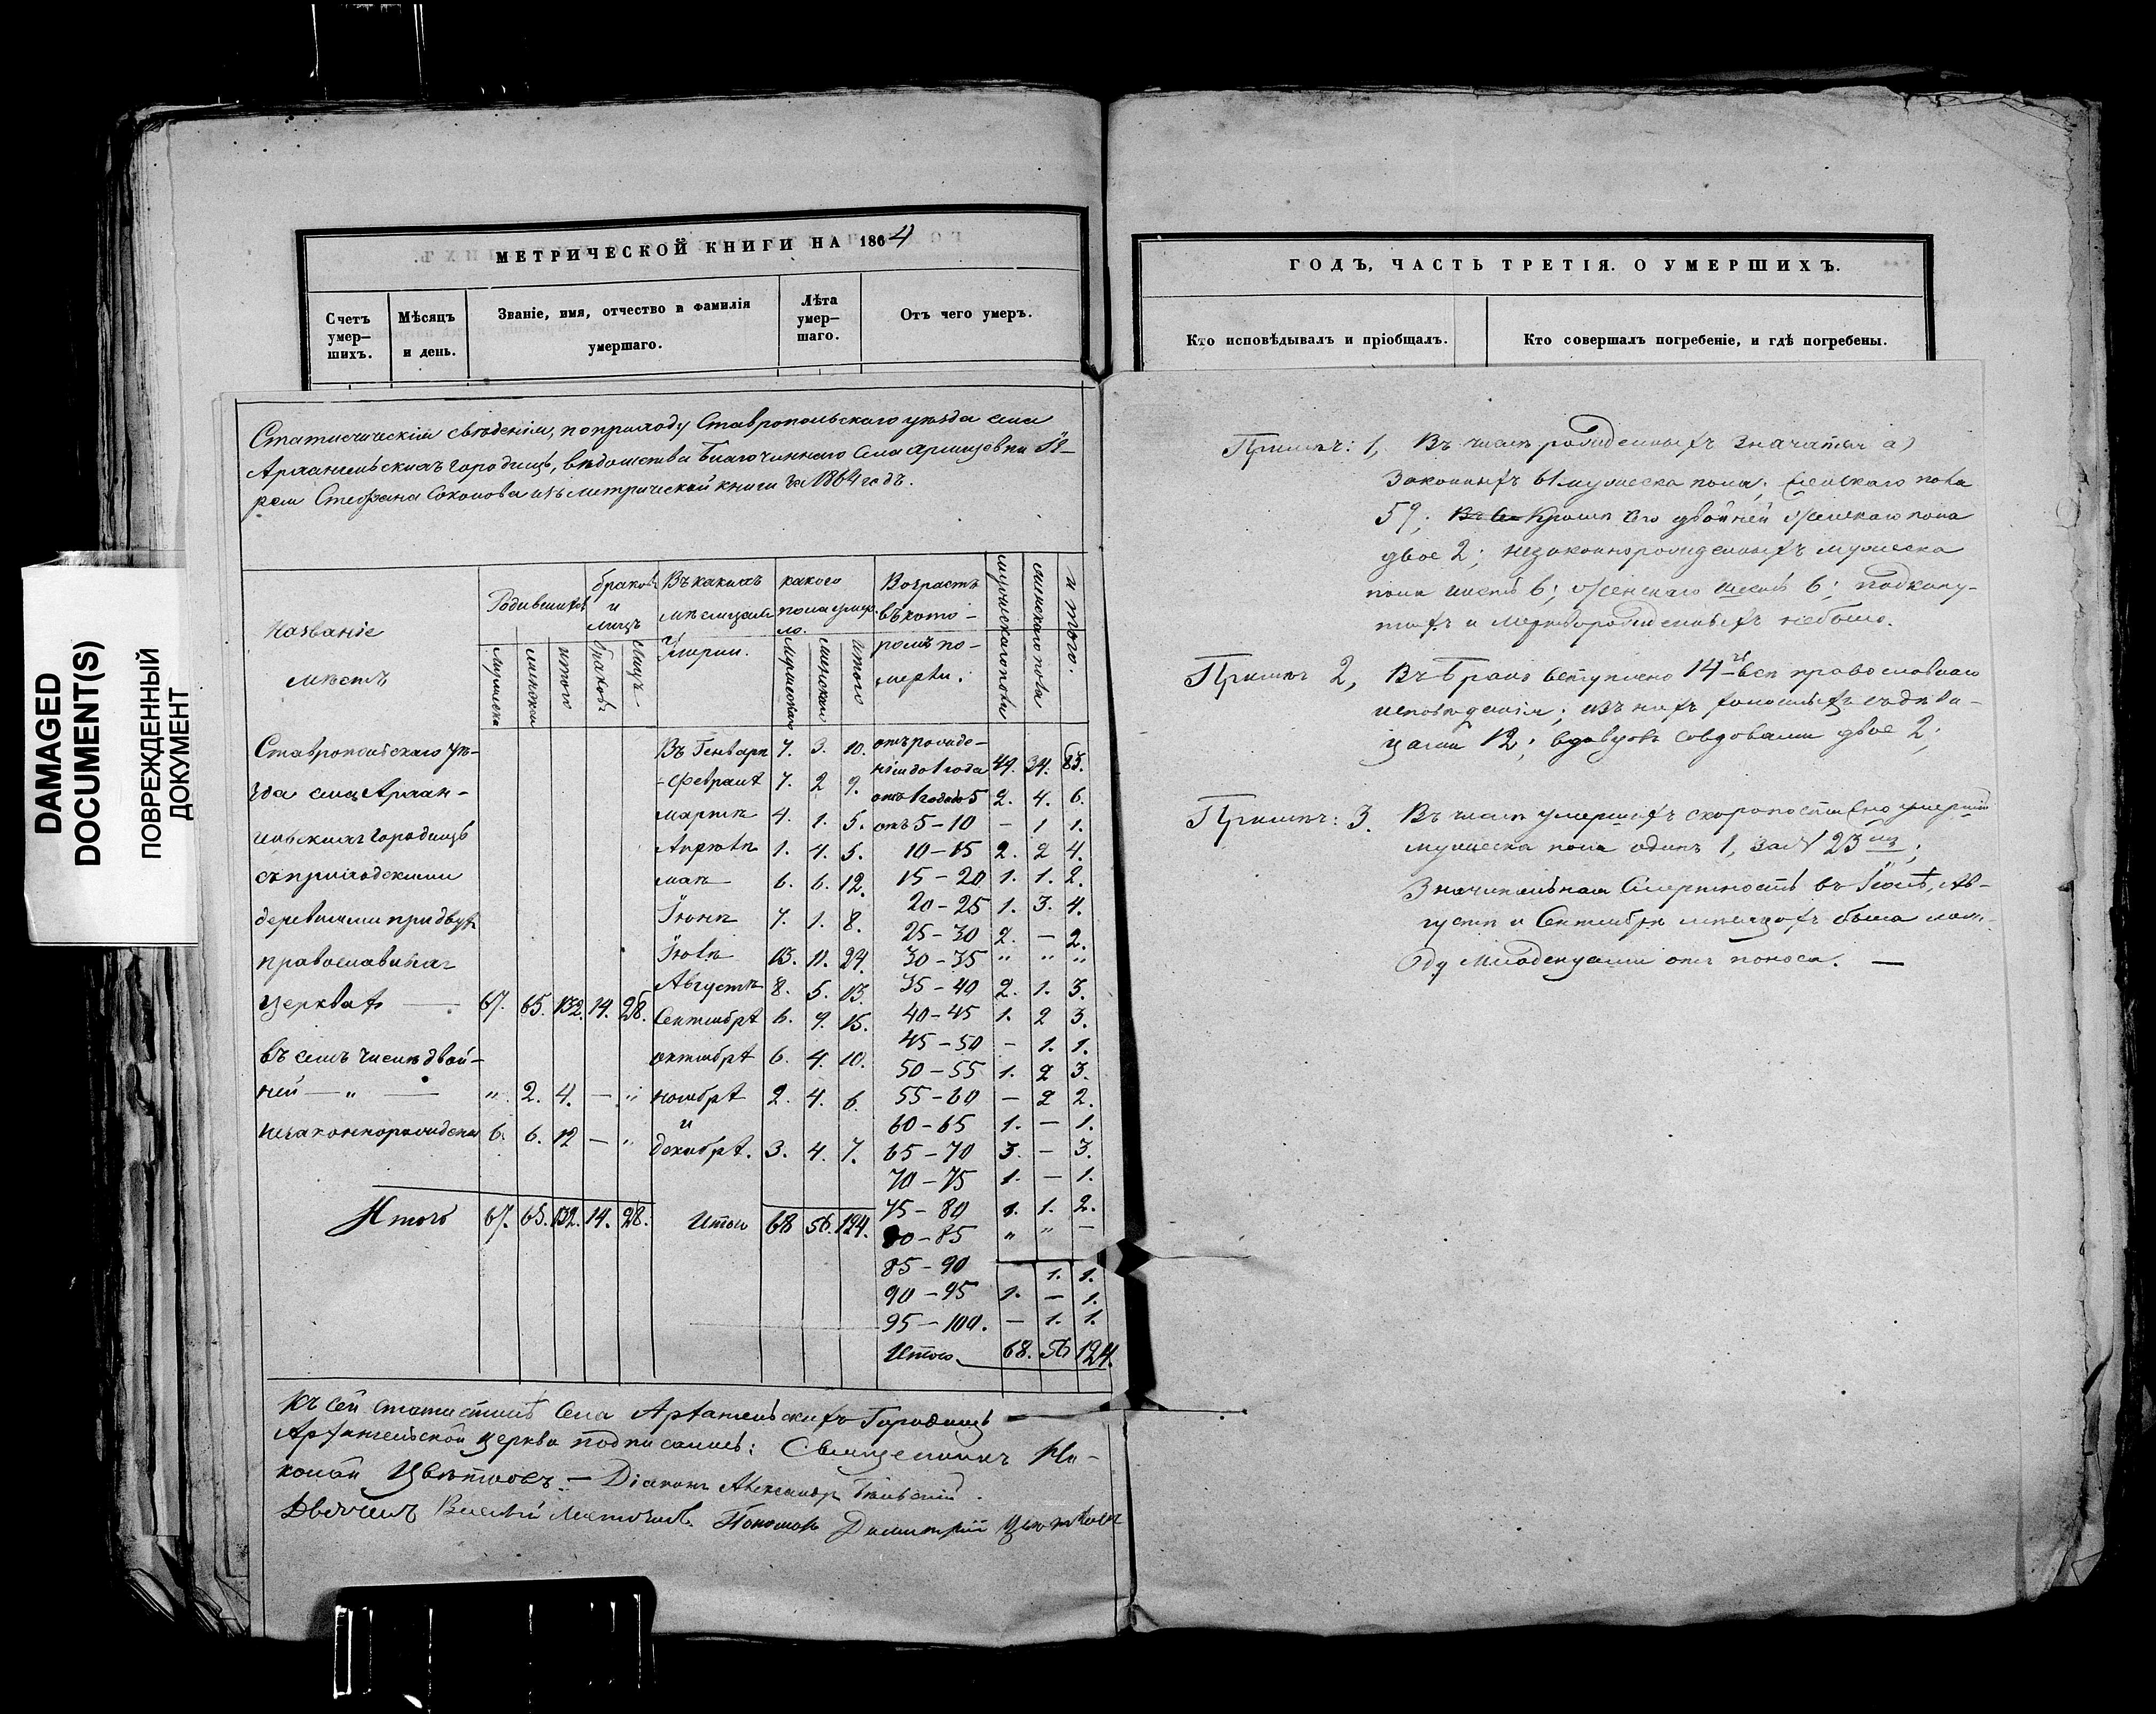 DAMAGED
DOCUMENT(S)
ПОВРЕЖДЕННЫЙ
ДОКУМЕНТ
МЕТРИЧЕСКОЙ КНИГИ НА 1864
Счетъ умер- шихъ.
Мѣсяцъ и день.
Званіе, имя, отчество и фамилія умершаго.
Лѣта умер- шаго.
Отъ чего умеръ.
Статистическія свѣденія, по приходу Ставропольскаго уѣзда села
Архангельскихъ Городищь, вѣдомства Благочиннаго села
рея Стефана Соколова изъ метрической книги за 1864 годъ.
Названіе мѣстъ
Родившихся
мужеска
женска
итого
браковъ и лицъ
браковъ
лицъ
Въ какихъ мѣсяцахъ умерли.
какого пола умер- ло.
мужескаго
женскаго
итого
Возрастъ въ кото- ромъ по- мерли.
мужескаго пола
женскаго пола
итого.
Ставропольскаго уѣ-
зда села Архан-
гельскихъ Городищь
съ приходскими
деревнями при двухъ
православныхъ
церквахъ — 67. 65. 132. 14. 28.
въ семъ числѣ двой-
ней — " — " 2. 4. — "
незаконнорожденны 6. 6. 12 — "
Итого 67. 65. 132. 14. 28.
Въ Генварѣ 7. 3. 10.
- Февралѣ 7. 2 9.
мартѣ 4. 1. 5.
Апрѣлѣ 1. 4. 5.
маѣ 6. 6. 12.
Іюнѣ 7. 1. 8.
Іюлѣ 13. 11. 24.
Августѣ 8. 5. 13.
Сентябрѣ 6. 9. 15.
октябрѣ 6. 4. 10.
ноябрѣ 2. 4. 6.
и
декабрѣ. 3. 4. 7.
Итого 68 56. 124.
отъ рожде-
нія до 1 года 49. 34. 83.
отъ 1 года до 5 2. 4. 6.
отъ 5-10 — 1 1.
10-15 2. 2 4.
15-20 1. 1. 2.
20-25 1. 3. 4.
25-30 2. — 2.
30-35 " " "
35-40 2. 1. 3.
40-45 1. 2 3.
45-50 — 1. 1.
50-55 1. 2 3.
55-60 — 2 2.
60-65 1. — 1.
65-70 3. — 3.
70-75 1. — 1.
75-80 1. 1. 2.
80-85 " " —
85-90 — 1. 1.
90-95 1. — 1.
95-100. — 1. 1.
Итого 68. 56 124.
Къ сей статистикѣ села Архангельскихъ Городищь
Архангельской церкви подписались: Священникъ Ни-
колай Цвѣтковъ. — Діаконъ Александръ
Дьячекъ Василій Пономарь Димитрій Цвѣтковъ
ГОДЪ, ЧАСТЬ ТРЕТІЯ. О УМЕРШИХЪ.
Кто исповѣдывалъ и пріобщалъ.
Кто совершалъ погребеніе, и гдѣ погребены.
Примѣч: 1, Въ числѣ рожденныхъ значатся а)
законныхъ 61 мужеска пола, женскаго пола
59; кромѣ сего двойней женскаго пола
двое 2; незаконнорожденныхъ мужеска
пола шесть 6; женскаго шесть 6; подкину-
тыхъ и мерворожденныхъ небыло.
Примѣч 2, Въ бракъ вступлено 14 всѣ православнаго
исповѣданія; изъ нихъ холостыхъ съ дѣви-
цами 12; вдовцовъ со вдовами двое 2;
Примѣч: 3. Въ числѣ умершихъ скоропостижно умершій
мужеска пола одинъ 1, за № 23 ;
Значительная смертность въ Іюлѣ, Ав-
густѣ и Сентябрѣ мѣсяцахъ была меж-
ду младенцами отъ поноса. —